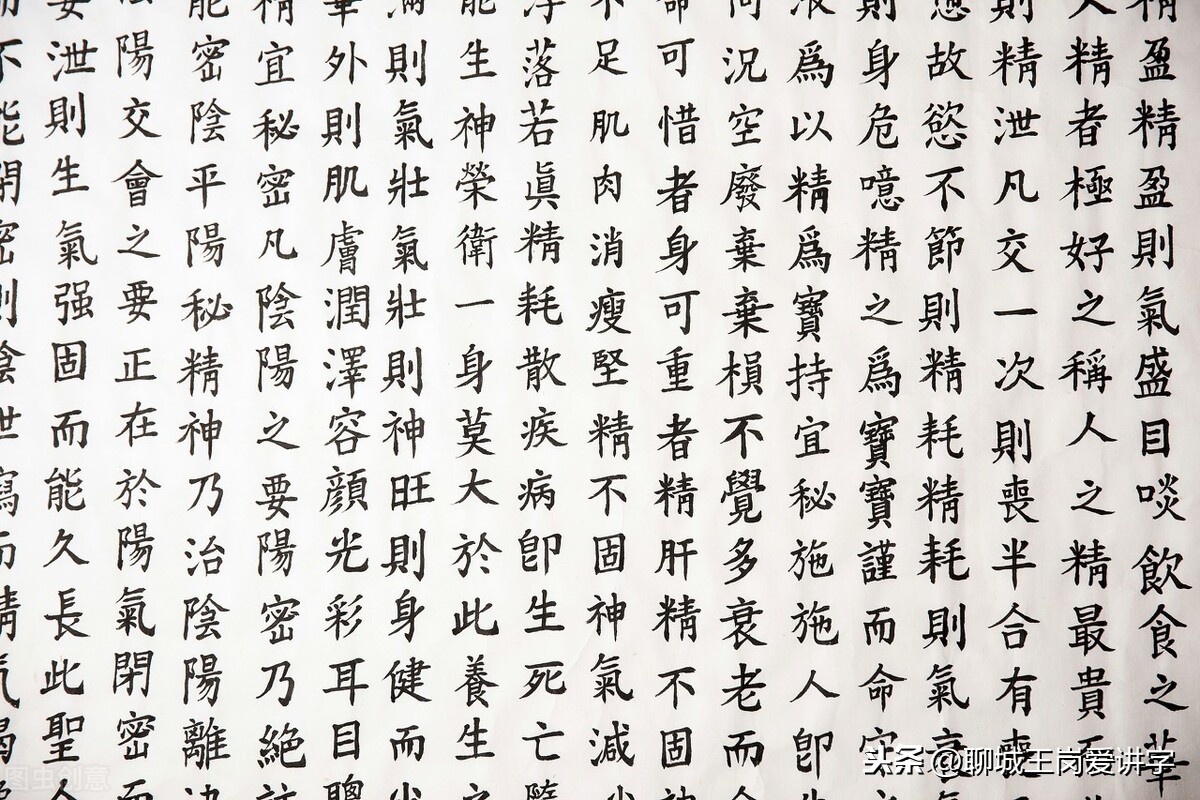 精盈精盈則氣盛目啖飲食之華
人精者極好之稱人之精最貴而
則精泄凡交一次則喪半合有喪
故慾不節則精耗精耗則氣衰
則身危噫精之爲寶寶謹而命
液爲以精爲寶持宜秘施施人卽
何況空廢棄棄損不覺多衰老而
命可惜者身可重者精肝精不固
不足肌肉消瘦堅精不固神氣減
浮落若眞精耗散疾病卽生死亡
能生神榮衛一身莫大於此養生之
滿則氣壯氣壯則神旺則身健而
華外則肌膚潤澤容顔光彩耳目聰
精宜秘密凡陰陽之要陽密乃絕
能密陰平陽秘精神乃治陰陽離
陽交會之要正在於陽氣閉密而
妄泄則生氣强固而能久長此聖人
不能閉密則陰泄寫而精气竭
头条 @聊城王岗爱讲字
图虫创意